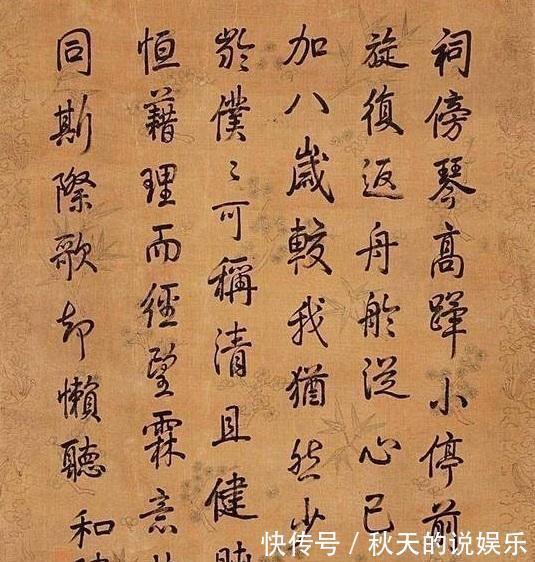 祠傍琴高蹕小停前
旋復返舟舲從心已
加八歲較我猶然少
於僕僕可稱清且健
恒藉理而經望霖意
同斯際歌却懶聽
和
快传号 / 秋天的说娱乐